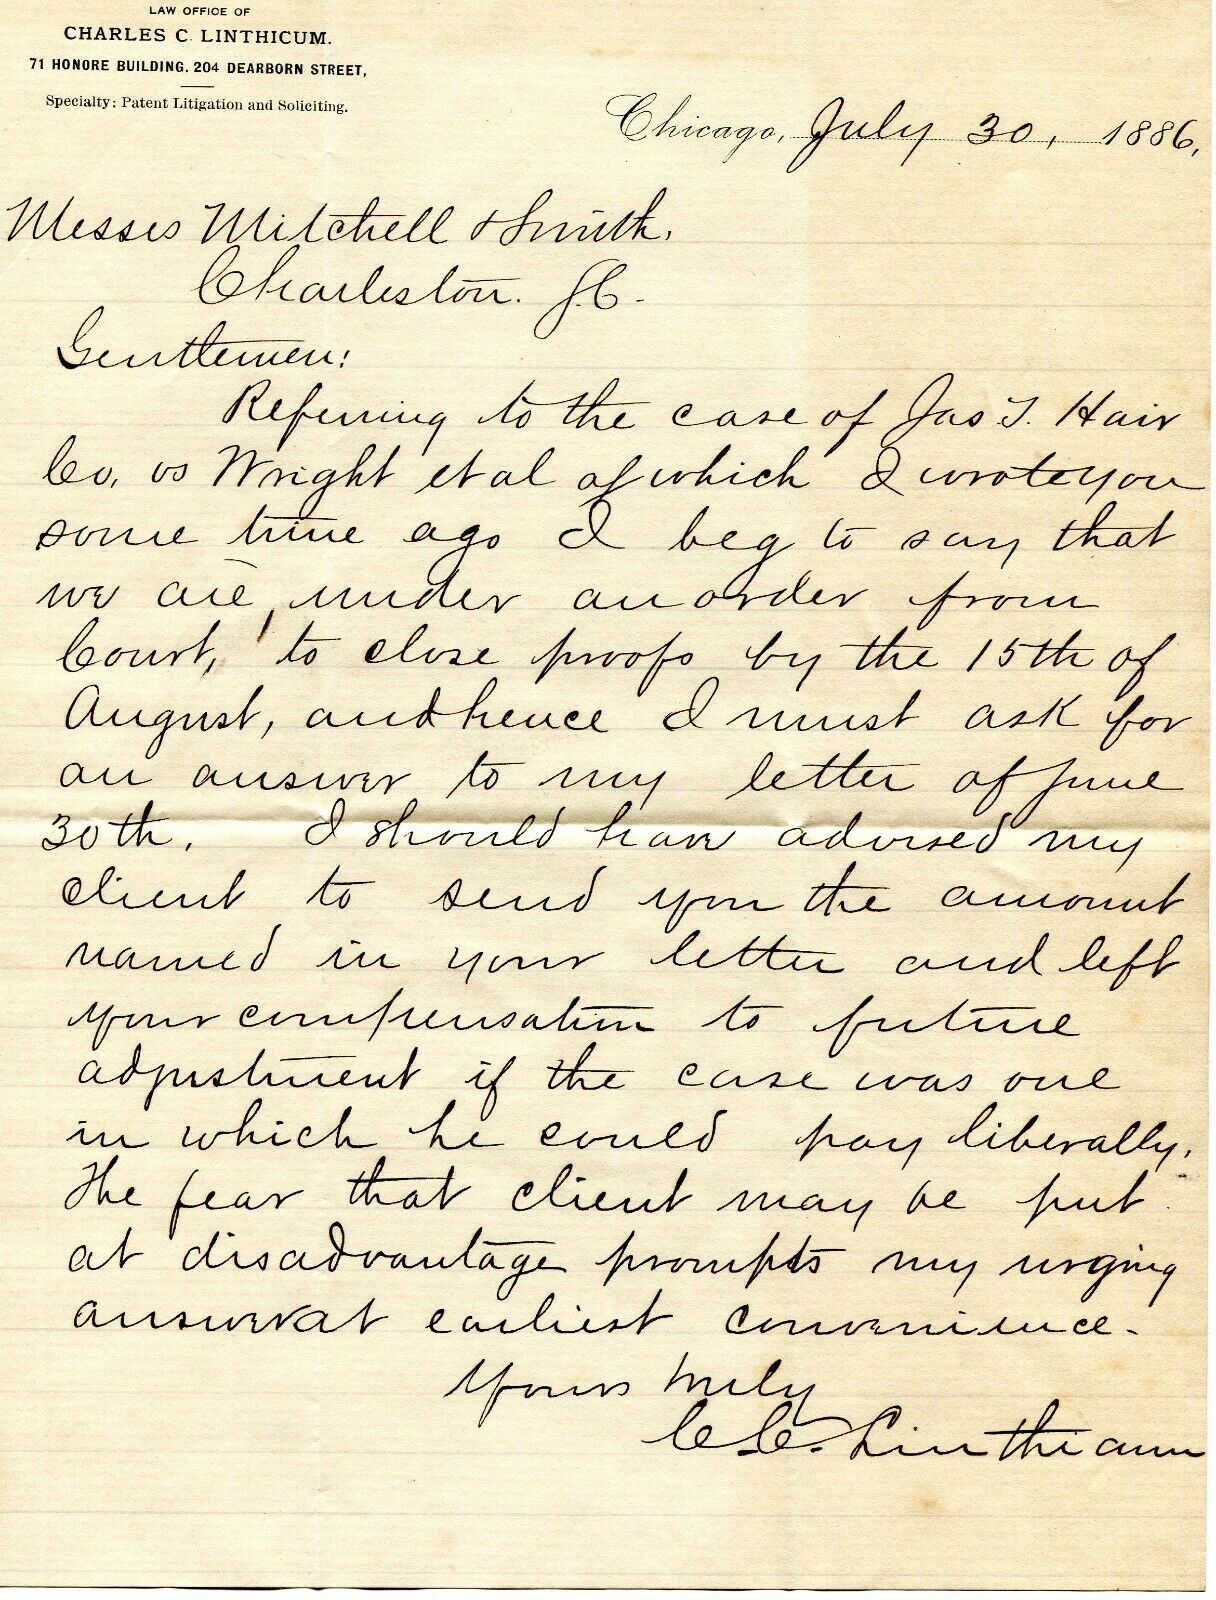 LAW OFFICE OF
CHARLES C. LINTHICUM.
71 HONORE BUILDING, 204 DEARBORN STREET,
Specialty: Patent Litigation and Soliciting.
Chicago, July 30, 1886,
Messrs Mitchell & Smith,
Charleston. S.C.
Gentlemen:
Referring to the case of Jas T. Hair
Co. vs Wright et al of which I wrote you
some time ago I beg to say that
we are, under an order from
Court, to close proofs by the 15th of
August, and hence I must ask for
an answer to my letter of June
30th. I should have advised my
client to send you the amount
named in your letter and left
your compensation to future
adjustment if the case was one
in which he could pay liberally.
The fear that client may be put
at disadvantage prompts my urging
answer at earliest convenience.
Yours truly
C.C. Linthicum